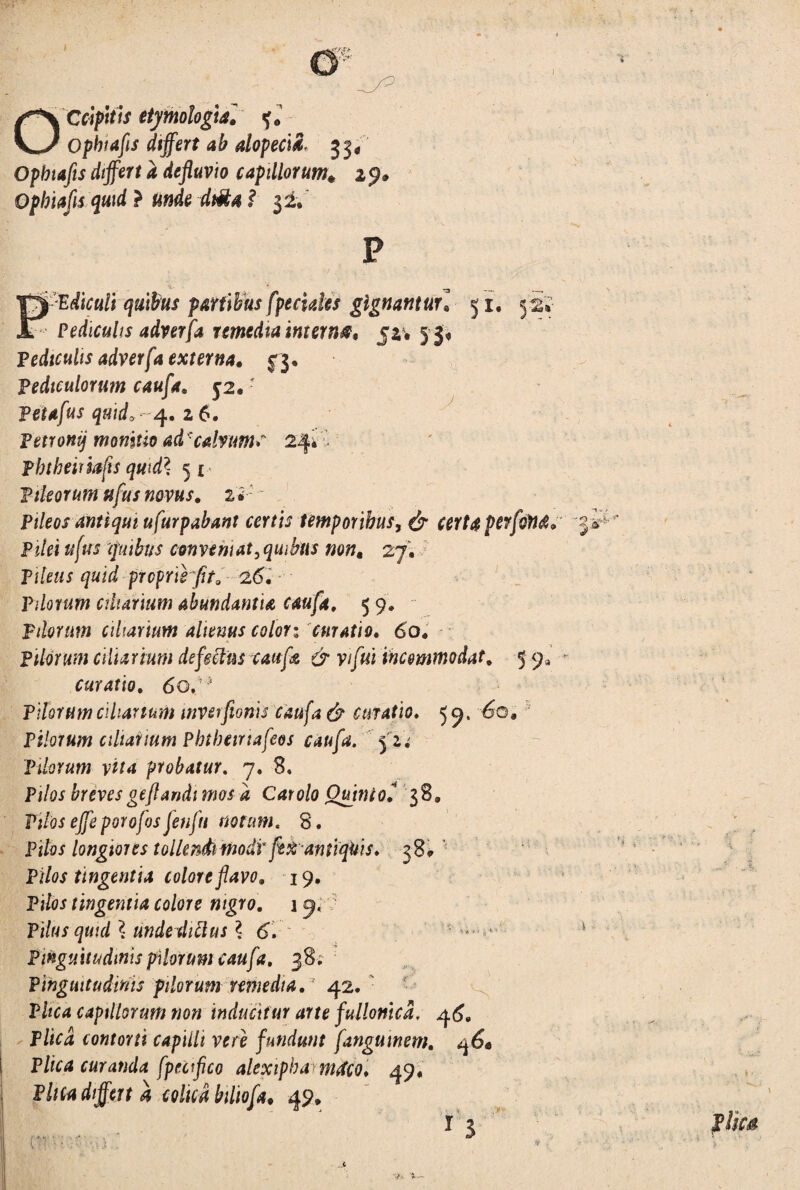 O
OCcipitis etymologia. 5.
Ophiaſis differt ab alopeciâ. 33.
Ophiaſis differt à defluvio capillorum. 29.
Ophiaſis quid? unde dicta? 32.
P
PEdiculi quibus partibus ſpeciales gignantur. 51. 52.
Pediculis adverſa remedia interna. 52. 53.
Pediculis adverſa externa. 53.
Pediculorum cauſa. 52.
Petaſus quid. 4. 26.
Petronij monitio ad calvum. 24.
Phtheiriaſis quid? 51
Pileorum uſus novus. 2
Pileos antiqui uſurpabant certis temporibus, & certa perſona.
Pilei uſus quibus conveniat, quibus non. 27.
Pileus quid proprie ſit. 26.
Pilorum ciliarium abundantiæ cauſa. 59.
Pilorum ciliarium alienus color: curatio. 60.
Pilorum ciliarium defectus cauſa & viſui incommodat. 59.
curatio. 60.
Pilorum ciliarium inverſionis cauſa & curatio. 59. 60.
Pilorum ciliarium Phtheiriaſeos cauſa. 52.
Pilorum vita probatur. 7. 8.
Pilos breves geſtandi mos à Carolo Quinto. 38.
Pilos eſſe poroſos ſenſu notum. 8.
Pilos longiores tollendi modi ſex antiquis. 38.
Pilos tingentia colore flavo. 19.
Pilos tingentia colore nigro. 19.
Pilus quid? unde dictus? 6.
Pinguitudinis pilorum cauſa. 38.
Pinguitudinis pilorum remedia. 42.
Plica capillorum non inducitur arte fullonicâ. 46.
Plicâ contorti capilli verè fundunt ſanguinem. 46.
Plica curanda ſpecifico alexipharmaco. 49.
Plica differt à colicâ bilioſa. 49.
I 3
Plica